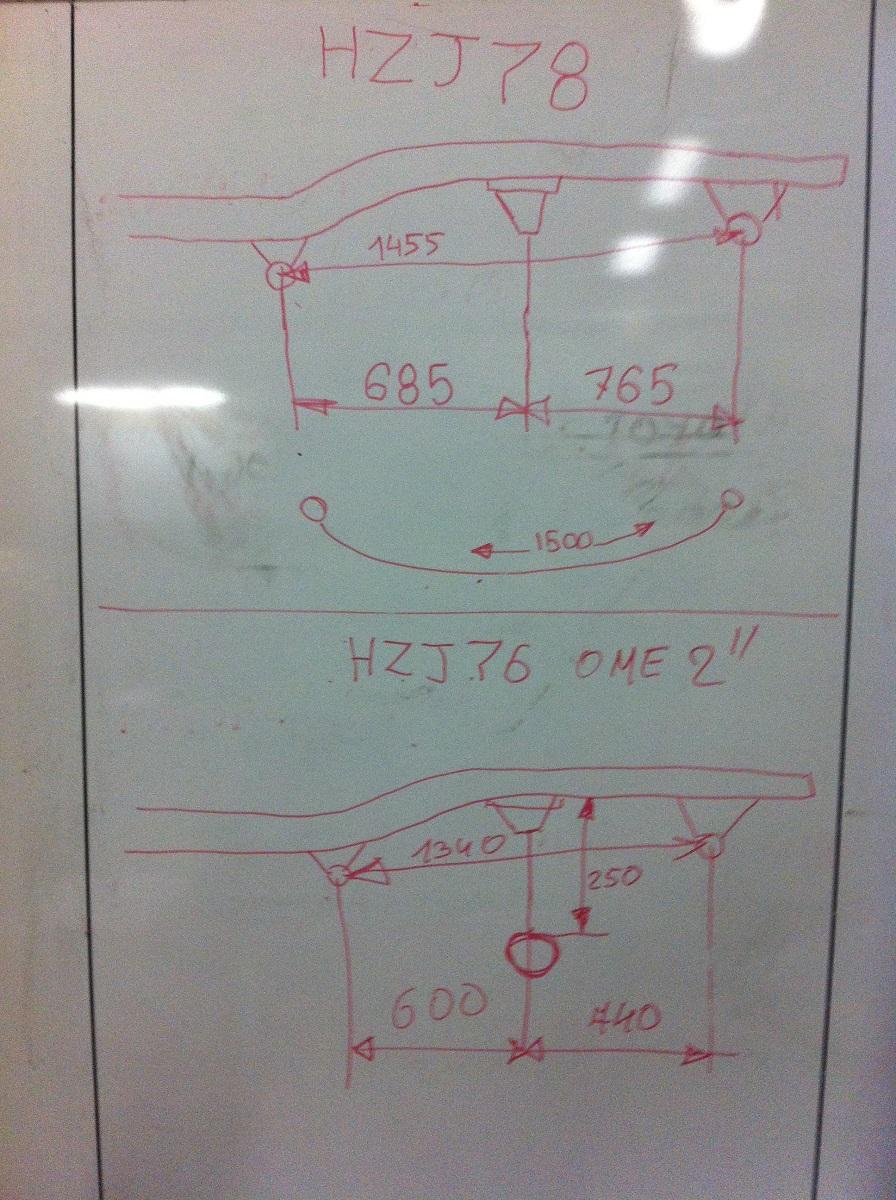 HZJ78
1455
685
765
1500
HZJ76 OME 2"
1340
250
600
740